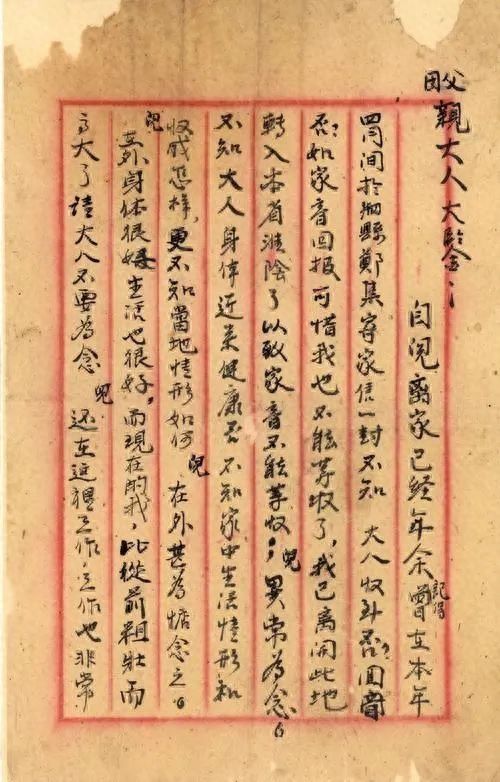 父母親大人 大鑒；
自兒离家已經年余記得曾在本年
四月间於縣鄭集寄家信一封不知 大人收到否？回音
否？如家音回报可惜我也不能等收了，我已离開此地
轉入本省淮陰了以致家音不能等收，兒異常為念。
不知大人身体近来健康否不知家中生活情形和
收成怎样，更不知當地情形如何 兒在外甚為惦念之。
兒在外身体很好生活也很好，而現在的我，比從前粗壯而
高大了請大人不要為念 兒还在工作，工作也非常